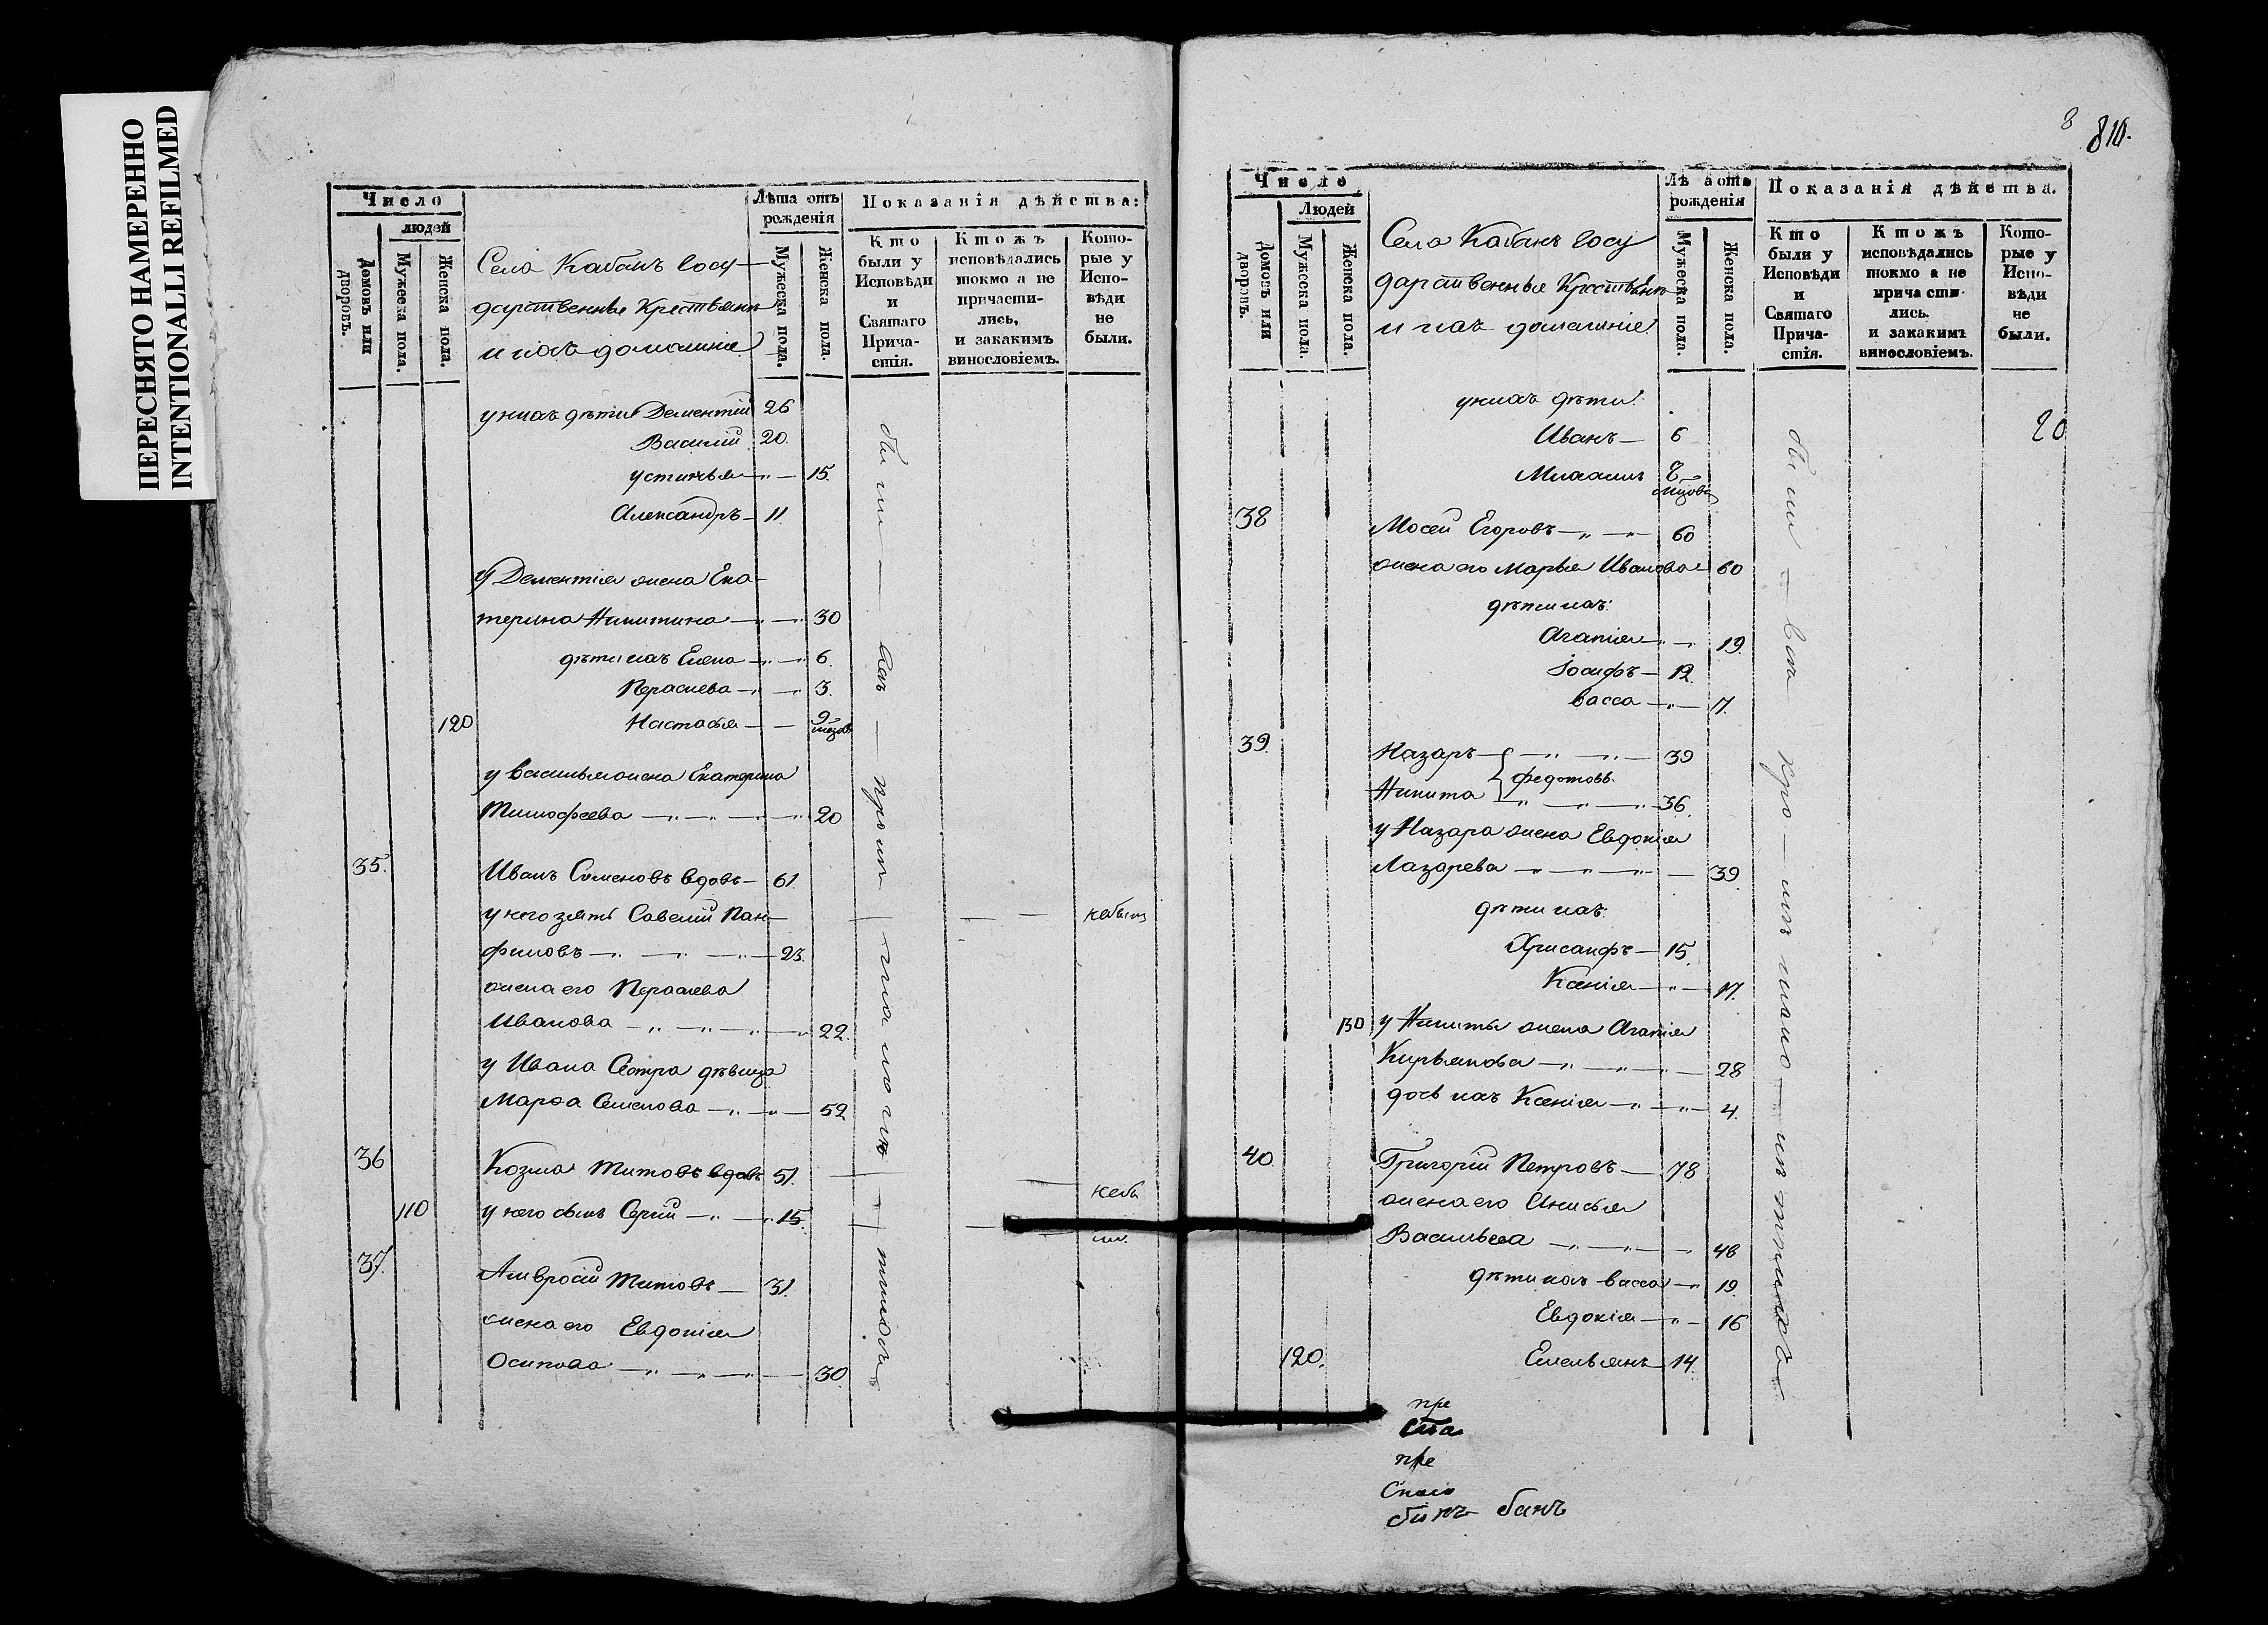 ПЕРЕСНЯТО НАМЕРЕННО
INTENTIONALLI REFILMED
Число
людей
Домовъ или дворовъ.
Мужеска пола.
Женска пола.
Села Кабанъ Госу
дарственныя Крестьяне
и ихъ домашнiе
Лѣта отъ рожденiя
Мужеска пола.
Женска пола.
Показанiя дѣйства:
Кто были у Исповѣди и Святаго Причастiя.
Ктожъ исповѣдались токмо а не причастились, и закакимъ винословiемъ.
Которые у Исповѣди не были.
у нихъ дѣти Дементiй 26
Василiй 20.
устинья 15.
Александръ 11.
у Дементiя жена Ека-
терина Никитина 30
дѣти ихъ Елена 6.
Параскева 3.
120 Настасья 9 мѣсяц
у василья жена Екатерина
Тимофеева 20
35. Иванъ Семеновъ вдовъ 61.
у него зять Савелiй Пан-
филовъ 23.
небылъ
жена его Параскева
Иванова 22.
у Ивана Сестра дѣвица
Марѳа Семенова 52
36 Козма Титовъ вдовъ 51.
110 у него сынъ Сергiй 15.
небы
ли.
37. Амвросiй Титовъ 31.
жена его Евдокiя
Осипова 30.
8
810.
Число
Людей
Домовъ или дворовъ.
Мужеска пола.
Женска пола.
Села Кабанъ Госу
дарственныя Крестьяне
и ихъ домашнiе
Лѣ а отъ рожденiя
Мужеска пола.
Женска пола.
Показанiя дѣйства.
Кто были у Исповѣди и Святаго Причастiя.
Ктожъ исповѣдались токмо а не причастились. и закакимъ винословiемъ.
Которые у Исповѣди не были.
у нихъ дѣти.
20
Иванъ 6
38 Мосей Егоровъ 60
жена его Марья Иванова 60
дѣти ихъ:
Агапiя 19.
Iосифъ 12.
васса 7.
39. Назаръ 39
федотовы
Никита 36.
у Назара жена Евдокiя
Лазарева 39.
дѣти ихъ:
Хрисанфъ 15.
Ксенiя 17.
130 у Никиты жена Агапiя
Кирьянова 28
дочь ихъ Ксенiя 4.
40. Григорiй Петровъ 78
жена его Анисья
Васильева 48
дѣти ихъ васса 19.
Евдокiя 16
120. Емельянъ 14.
пре
пре
банъ